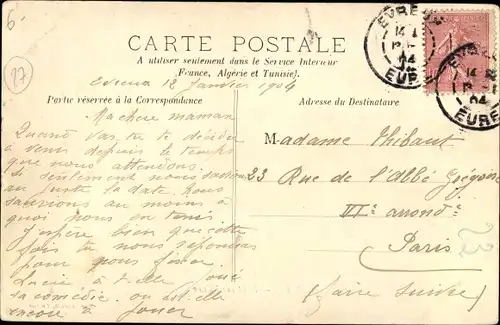 6.-
27
CARTE POSTALE
A utiliser seulement dans le Service Intérieur
(France, Algérie et Tunisie).
Partie réservée à la Correspondance
Adresse du Destinataire
EVREUX
EURE
04
EVREUX
EURE
04
Evreux 12 Janvier 1904
Ma chère maman
Quand vas-tu te décider
à venir depuis le temps
que nous attendons.
Si seulement nous savions
au juste la date. nous
saurions au moins à
quoi nous en tenir.
J'espère bien que cette
fois tu nous répondras
pour nous fixer.
Lucie a-t-elle joué
sa comédie. ou est-elle
encore à jouer
Madame Thibaut
23 Rue de l'Abbé Grégoire
VI e arrond t
Paris
(faire suivre)